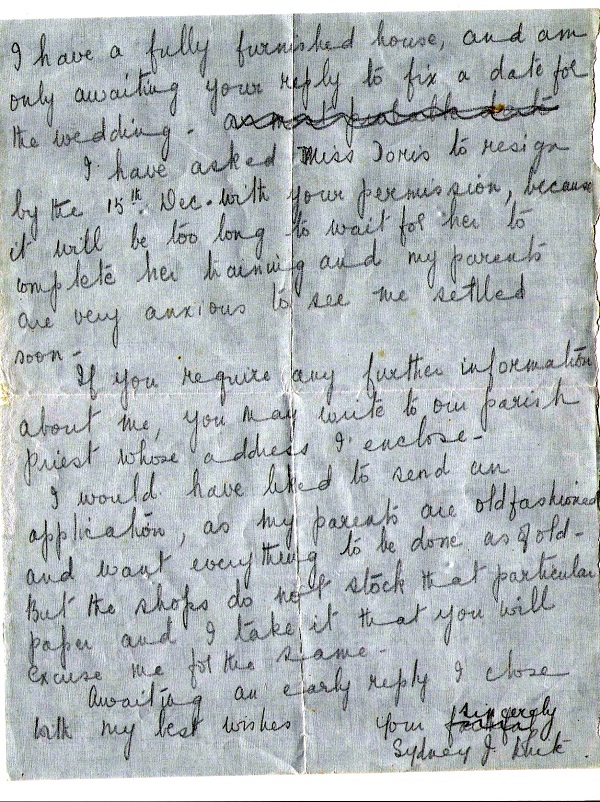 I have a fully furnished house, and am
only awaiting your reply to fix a date for
the wedding -
I have asked Miss Doris to resign
by the 15th Dec. with your permission, because
it will be too long to wait for her to
complete her training and my parents
are very anxious to see me settled
soon -
If you require any further information
about me, you may write to our parish
priest whose address I enclose -
I would have liked to send an
application, as my parents are oldfashioned
and want everything to be done as of old -
But the shops do not stock that particular
paper and I take it that you will
excuse me for the same -
Awaiting an early reply I close
with my best wishes your sincerely
Sydney J